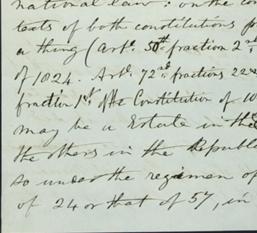 national law: on the con
texts of both constitutions
a thing (Artº. 50th. fraction 2nd.
of 1824. Artº. 72nd. fractions 22
fraction 1st. of the Constitution of 18
may be a Estate in the
the others in the Republ
so under the regimen of
of 24 or that of 57, in